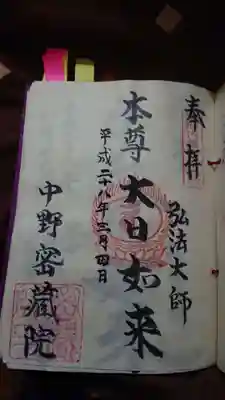 奉拝
弘法大師
本尊 大日如来
平成二八年三月四日
中野密蔵院